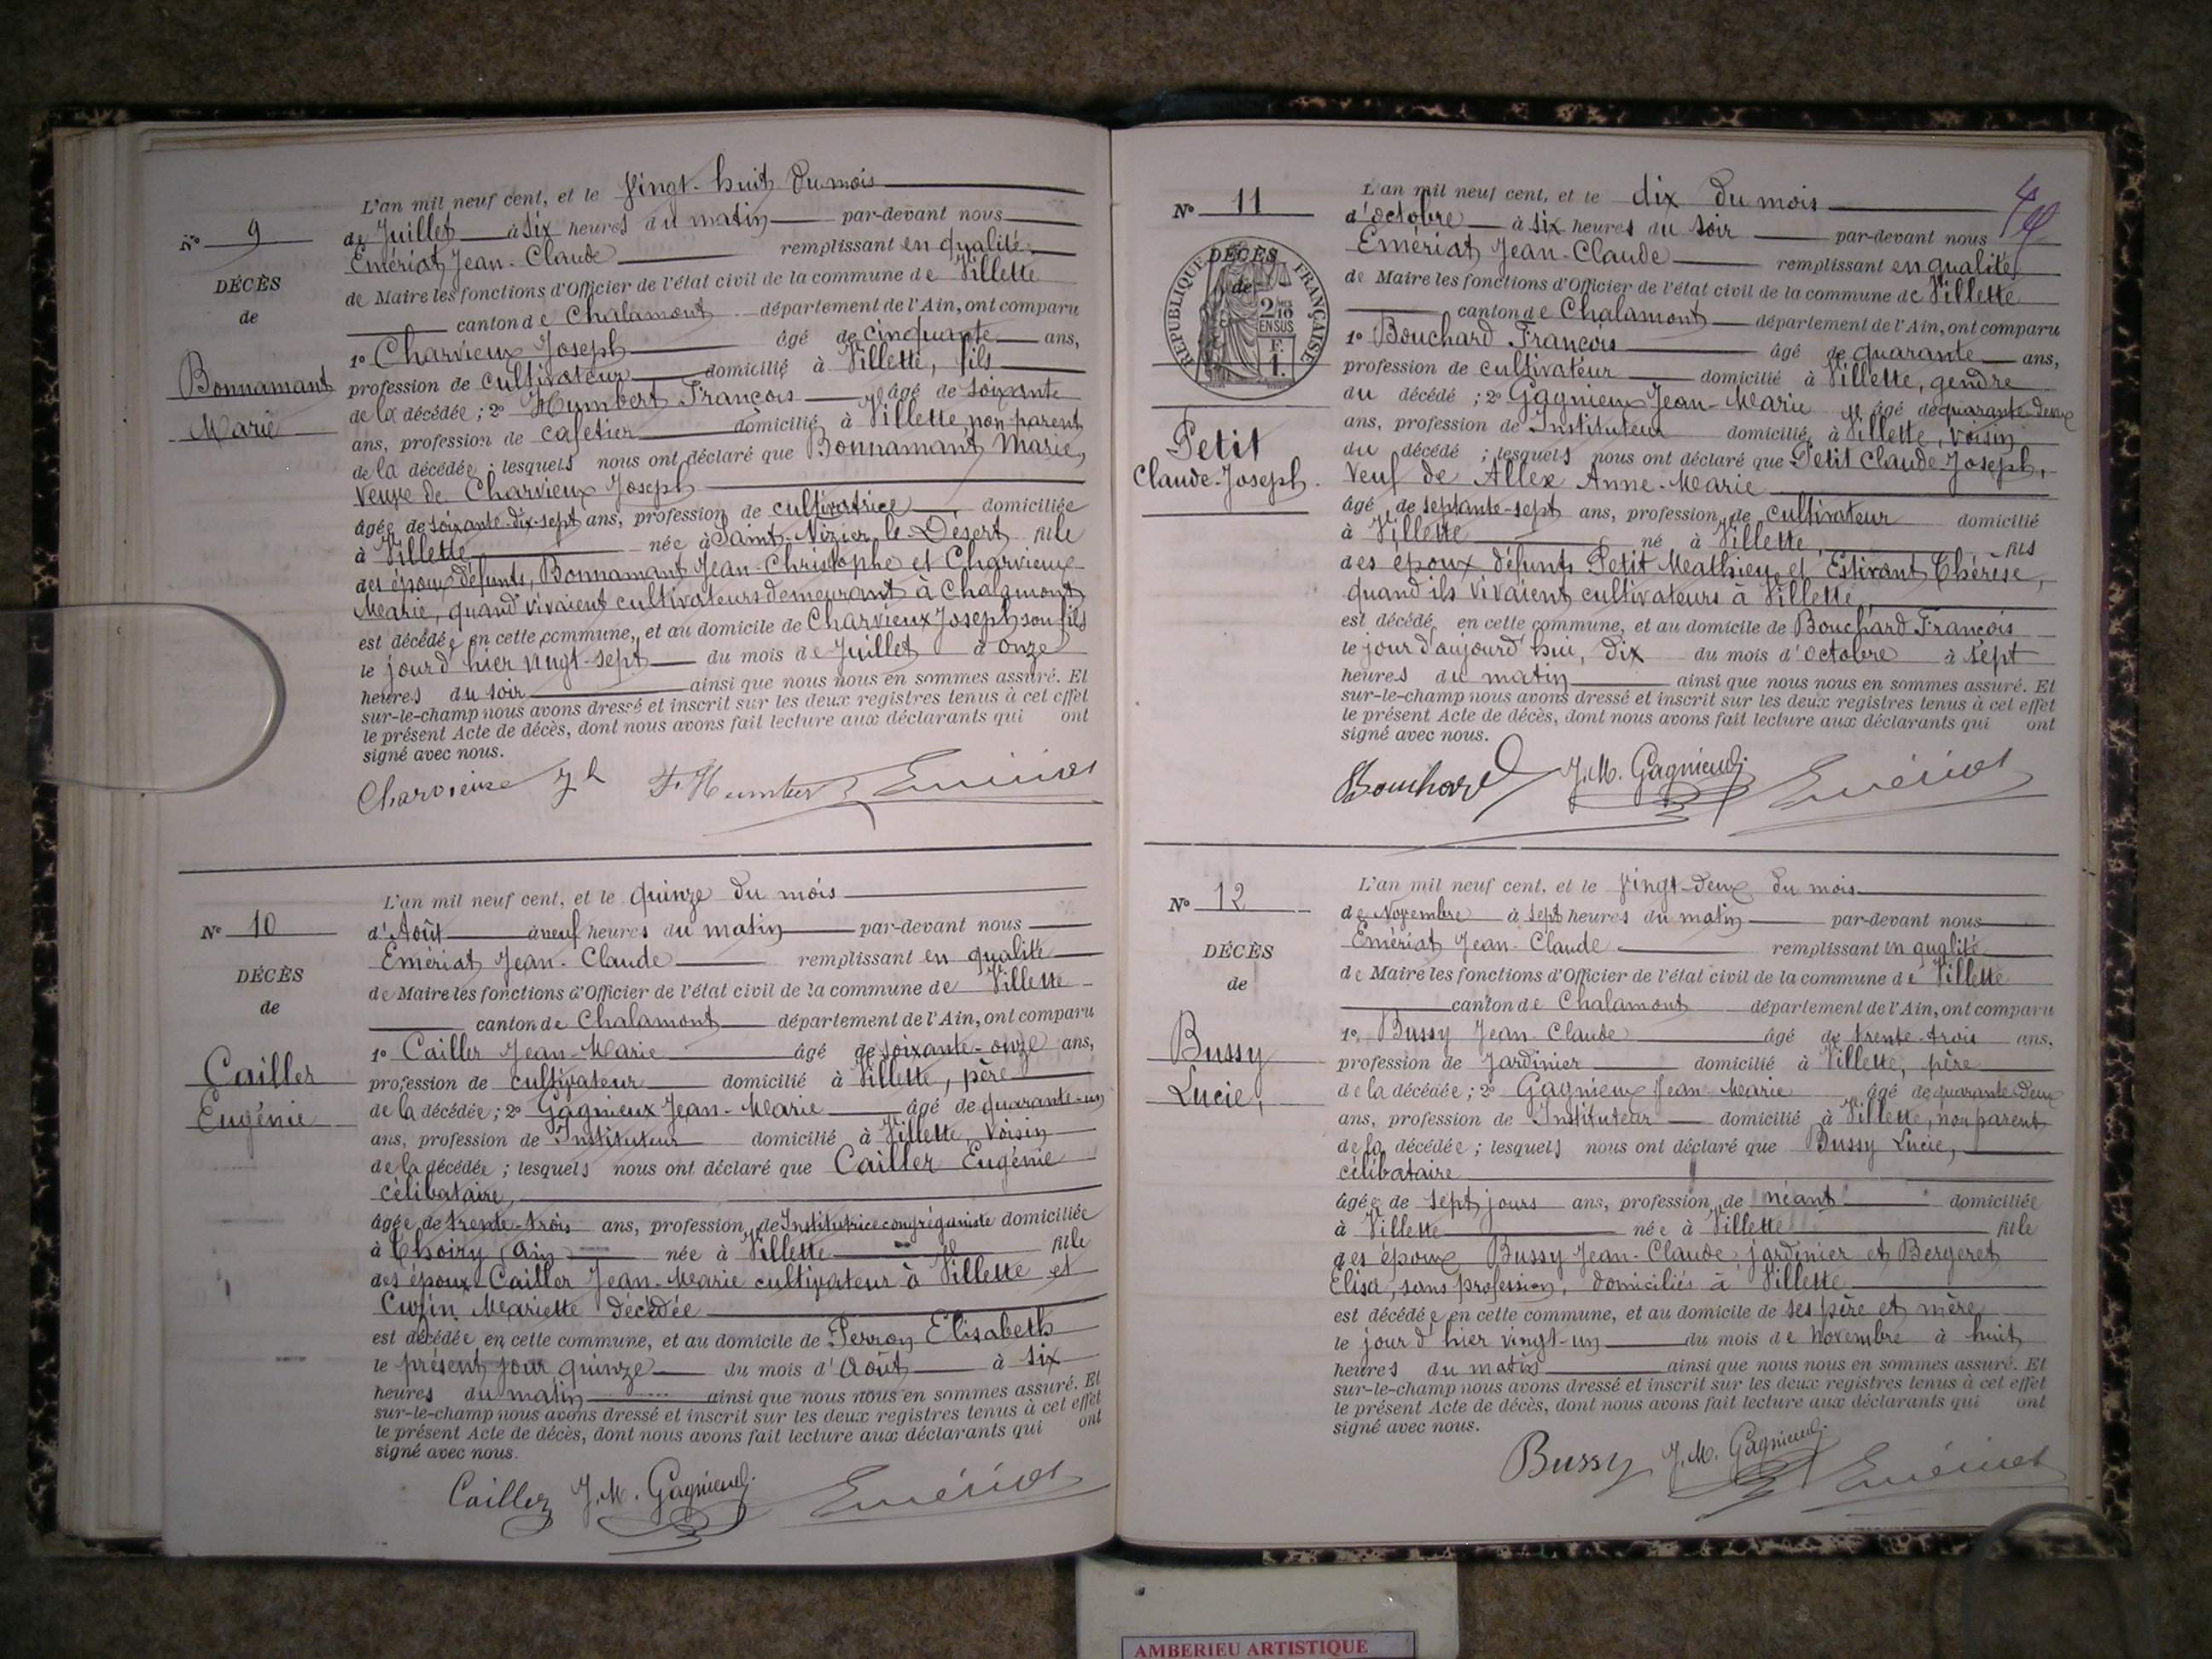 N° 9
DÉCÈS
de
Bonnamant
Marie
L'an mil neuf cent, et le Vingt-huit du mois
de Juillet à six heures du matin par-devant nous
Emériat Jean-Claude remplissant en qualité
de Maire les fonctions d'Officier de l'état civil de la commune de Villette
canton de Chalamont département de l'Ain, ont comparu
1° Charvieux Joseph âgé de cinquante ans,
profession de cultivateur domicilié à Villette, fils
de la décédée ; 2° Humbert François âgé de soixante
ans, profession de cafetier domicilié à Villette, non parent
de la décédée ; lesquels nous ont déclaré que Bonnamant Marie,
Veuve de Charvieux Joseph
âgée de soixante-dix-sept ans, profession de cultivatrice, domiciliée
à Villette née à Saint-Nizier-le-Desert fille
des époux défunts, Bonnamant Jean-Christophe et Charvieux
Marie, quand vivaient cultivateurs demeurant à Chalamont
est décédée en cette commune, et au domicile de Charvieux Joseph son fils
le jour d'hier vingt-sept du mois de Juillet à onze
heures du soir ainsi que nous nous en sommes assuré. Et
sur-le-champ nous avons dressé et inscrit sur les deux registres tenus à cet effet
le présent Acte de décès, dont nous avons fait lecture aux déclarants qui ont
signé avec nous.
Charvieux Jh F. Humbert Emériat
N° 10
DÉCÈS
de
Cailler
Eugénie
L'an mil neuf cent, et le quinze du mois
d'Août à neuf heures du matin par-devant nous
Emériat Jean-Claude remplissant en qualité
de Maire les fonctions d'Officier de l'état civil de la commune de Villette
canton de Chalamont département de l'Ain, ont comparu
1° Cailler Jean-Marie âgé de soixante-onze ans,
profession de cultivateur domicilié à Villette, père
de la décédée ; 2° Gagnieux Jean-Marie âgé de quarante-un
ans, profession de Instituteur domicilié à Villette, Voisin
de la décédée ; lesquels nous ont déclaré que Cailler Eugénie
célibataire,
âgée de trente-trois ans, profession de Institutrice congréganiste domiciliée
à Thoiry (Ain) née à Villette fille
des époux Cailler Jean-Marie cultivateur à Villette et
Mariette décédée
est décédée en cette commune, et au domicile de Perron Elisabeth
le présent jour quinze du mois d'Août à six
heures du matin ainsi que nous nous en sommes assuré. Et
sur-le-champ nous avons dressé et inscrit sur les deux registres tenus à cet effet
le présent Acte de décès, dont nous avons fait lecture aux déclarants qui ont
signé avec nous.
Cailler J.M. Gagnieux Emériat
N° 11
RÉPUBLIQUE FRANÇAISE
2/10 EN SUS
F. 1.
DÉCÈS
de
Petit
Claude-Joseph.
L'an mil neuf cent, et le dix du mois
d'octobre à six heures du soir par-devant nous
Emériat Jean-Claude remplissant en qualité
de Maire les fonctions d'Officier de l'état civil de la commune de Villette
canton de Chalamont département de l'Ain, ont comparu
1° Bouchard François âgé de quarante ans,
profession de cultivateur domicilié à Villette, gendre
du décédé ; 2° Gagnieux Jean-Marie âgé de quarante-deux
ans, profession de Instituteur domicilié à Villette, voisin
du décédé ; lesquels nous ont déclaré que Petit Claude-Joseph,
Veuf de Allex Anne-Marie
âgé de septante-sept ans, profession de cultivateur domicilié
à Villette né à Villette, fils
des époux défunts Petit Mathieu et Estivant Thérèse,
quand ils vivaient cultivateurs à Villette,
est décédé en cette commune, et au domicile de Bouchard François
le jour d'aujourd'hui, dix du mois d'octobre à sept
heures du matin ainsi que nous nous en sommes assuré. Et
sur-le-champ nous avons dressé et inscrit sur les deux registres tenus à cet effet
le présent Acte de décès, dont nous avons fait lecture aux déclarants qui ont
signé avec nous.
Bouchard J.M. Gagnieux Emériat
N° 12
DÉCÈS
de
Bussy
Lucie,
L'an mil neuf cent, et le Vingt-deux du mois
de Novembre à sept heures du matin par-devant nous
Emériat Jean-Claude remplissant en qualité
de Maire les fonctions d'Officier de l'état civil de la commune de Villette
canton de Chalamont département de l'Ain, ont comparu
1° Bussy Jean-Claude âgé de trente-trois ans,
profession de Jardinier domicilié à Villette, père
de la décédée ; 2° Gagnieux Jean-Marie âgé de quarante-deux
ans, profession de Instituteur domicilié à Villette, non parent
de la décédée ; lesquels nous ont déclaré que Bussy Lucie,
célibataire
âgée de sept jours ans, profession de néant domiciliée
à Villette née à Villette fille
des époux Bussy Jean-Claude jardinier et Bergeret
Elisa, sans profession, domiciliés à Villette
est décédée en cette commune, et au domicile de ses père et mère
le jour d'hier vingt-un du mois de Novembre à huit
heures du matin ainsi que nous nous en sommes assuré. Et
sur-le-champ nous avons dressé et inscrit sur les deux registres tenus à cet effet
le présent Acte de décès, dont nous avons fait lecture aux déclarants qui ont
signé avec nous.
Bussy J.M. Gagnieux Emériat
AMBERIEU ARTISTIQUE